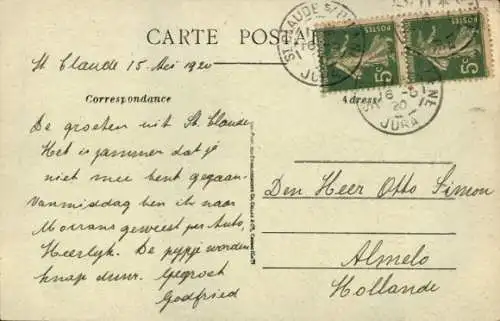 CARTE POSTALE
St Claude 15 Mei 1920
Correspondance
Adresse
De groeten uit St. Claude
Het is jammer dat je
niet mee bent gegaan.
Vanmiddag ben ik naar
Morrans geweest per Auto,
Heerlijk. De pypje worden
knap duur. Gegroet
Godfried
Den Heer Otto Simon
Almelo
Hollande
POSTES
5c
POSTES
5c
ST CLAUDE S/
JURA
20
JURA